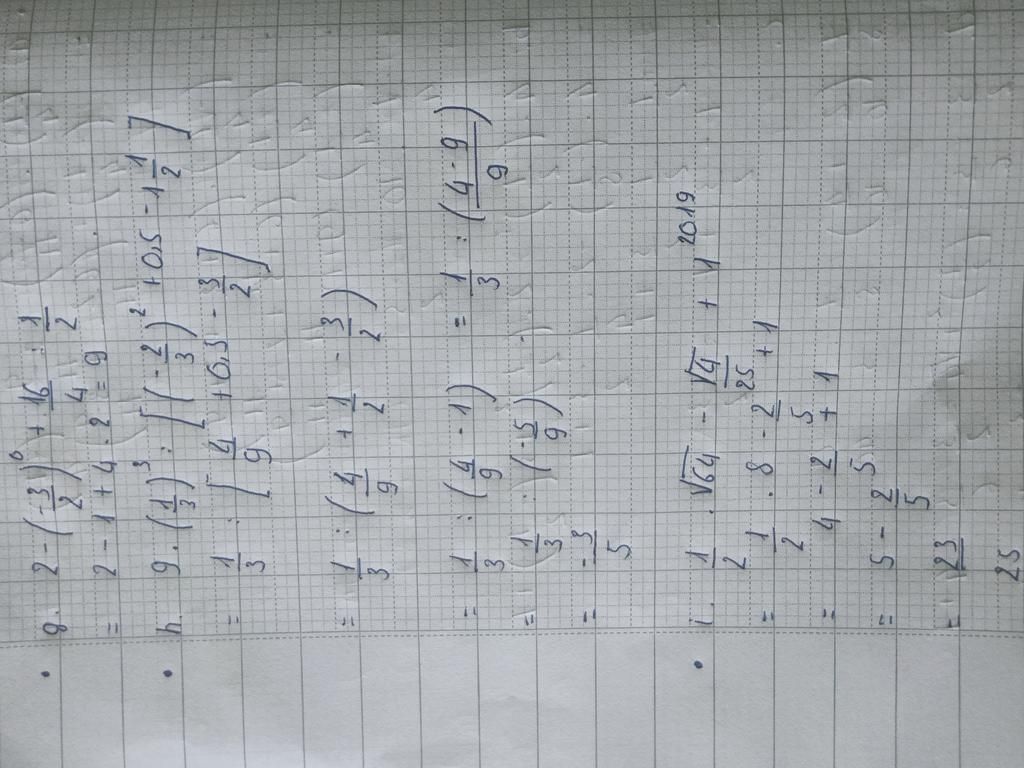 g. 2 - (-3/2)^0 + 16/4 : 1/2
= 2 - 1 + 4 . 2 = 9
h 9 . (1/3)^3 : [(-2/3)^2 + 0,5 - 1 1/2]
= 1/3 : [4/9 + 0,5 - 3/2]
= 1/3 : (4/9 + 1/2 - 3/2)
= 1/3 : (4/9 - 1) = 1/3 : (4 - 9/9)
= 1/3 : (-5/9)
= -3/5
i. 1/2 . √64 - √4/25 + 1^2019
= 1/2 . 8 - 2/5 + 1
= 4 - 2/5 + 1
= 5 - 2/5
= 23
25